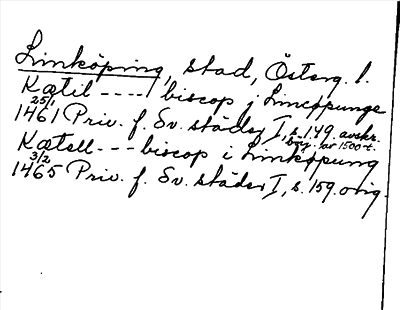 Linköping, stad, Österg. l.
Kætil ---- biscop j Lincopunge
25/1 1461 Priv. f. Sv. städer I, s. 149. avskr. börj. av 1500-t.
Kætell --- biscop i Linköpung
3/2 1465 Priv. f. Sv. städer I, s. 159. orig.